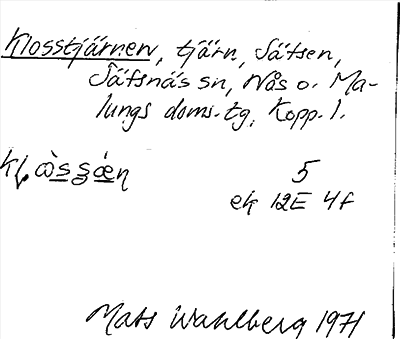 Klosstjärnen, tjärn, Sätsen,
Säfsnäs sn, Nås o. Ma-
lungs doms.tg, Kopp. l.
5
ek 12E 4f
Mats Wahlberg 1971